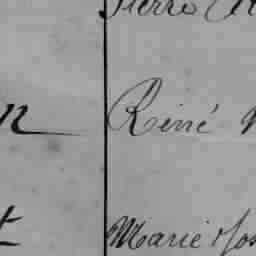 Pierre
n René
t Marie Jos